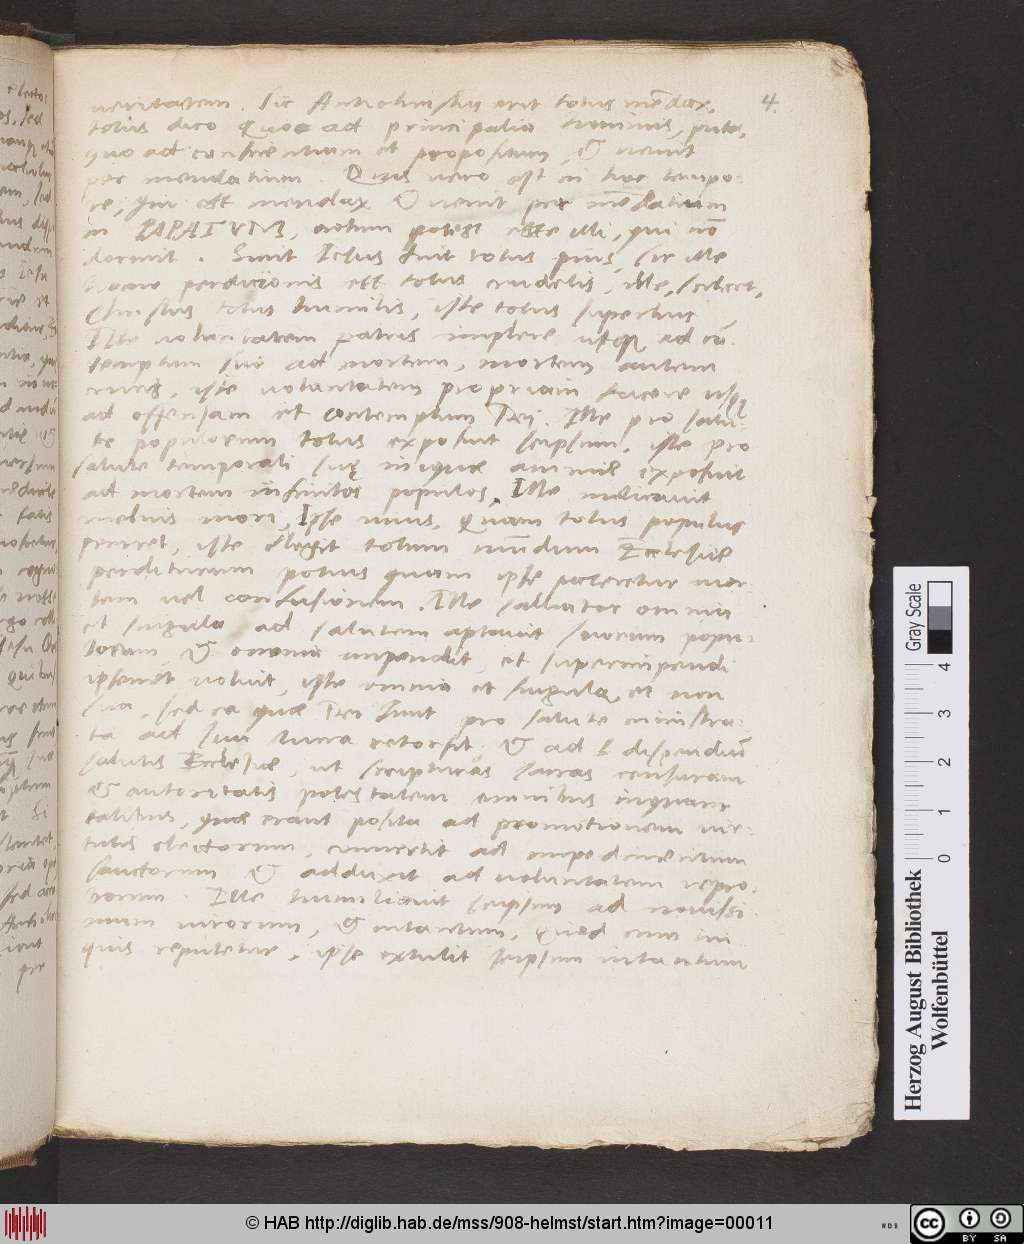 4.
veritatem. Sic Antichristus erit totus mēdax,
totus dico quo ad principalia hominis, puta,
quo ad conscientiam et propositum, & venit
per mendatium. Quis vero est in hoc tempo-
re, qui est mendax & venit per mēdatium
in PAPATVM, notum potest esse illi, qui nō
dormit. Sicut Iesus fuit totus pius, sic ille
homo perdicionis est totus crudelis, ille, scilicet,
Christus totus humilis, iste totus superbus
Ille voluntatem patris implere usque ad cō-
temptum sui ad mortem, mortem autem
crucis, iste voluntatem propriam facere usque
ad offensam et contemptum Dei. Ille pro salu-
te populorum totus exposuit seipsum, iste pro
salute temporali suę iniquæ animæ exposuit
ad mortem infinitos populos. Ille
melius mori, Ipse unus, quam totus populus
periret, iste elegit totum mūdum Ecclesiæ
perditurum potius quam ipse pateretur mor-
tem vel confusionem. Ille salvator omnia
et singula ad salutem aptavit suorum popu-
lorum & omnia impendit, et superimpendi
ipsemet voluit, iste omnia et singula et non
sua, sed ea quæ Dei sunt pro salute ministra-
ta ad sua lucra retorsit & ad dispendiū
salutis Ecclesiæ, ut scripturas sacras censuram
& autoritatis potestatem omnibus inquam
talibus, quæ erant posita ad promotionem vir-
tutis electorum, convertit ad impedimentum
sanctorum & adduxit ad voluntatem repro-
borum. Ille humiliavit seipsum ad novissi-
mum virorum, & intantum, quod cum ini
quis reputetur, ipse extulit seipsum intantum
Gray Scale
0 1 2 3 4
Herzog August Bibliothek
Wolfenbüttel
© HAB http://diglib.hab.de/mss/908-helmst/start.htm?image=00011
WDB
cc BY SA